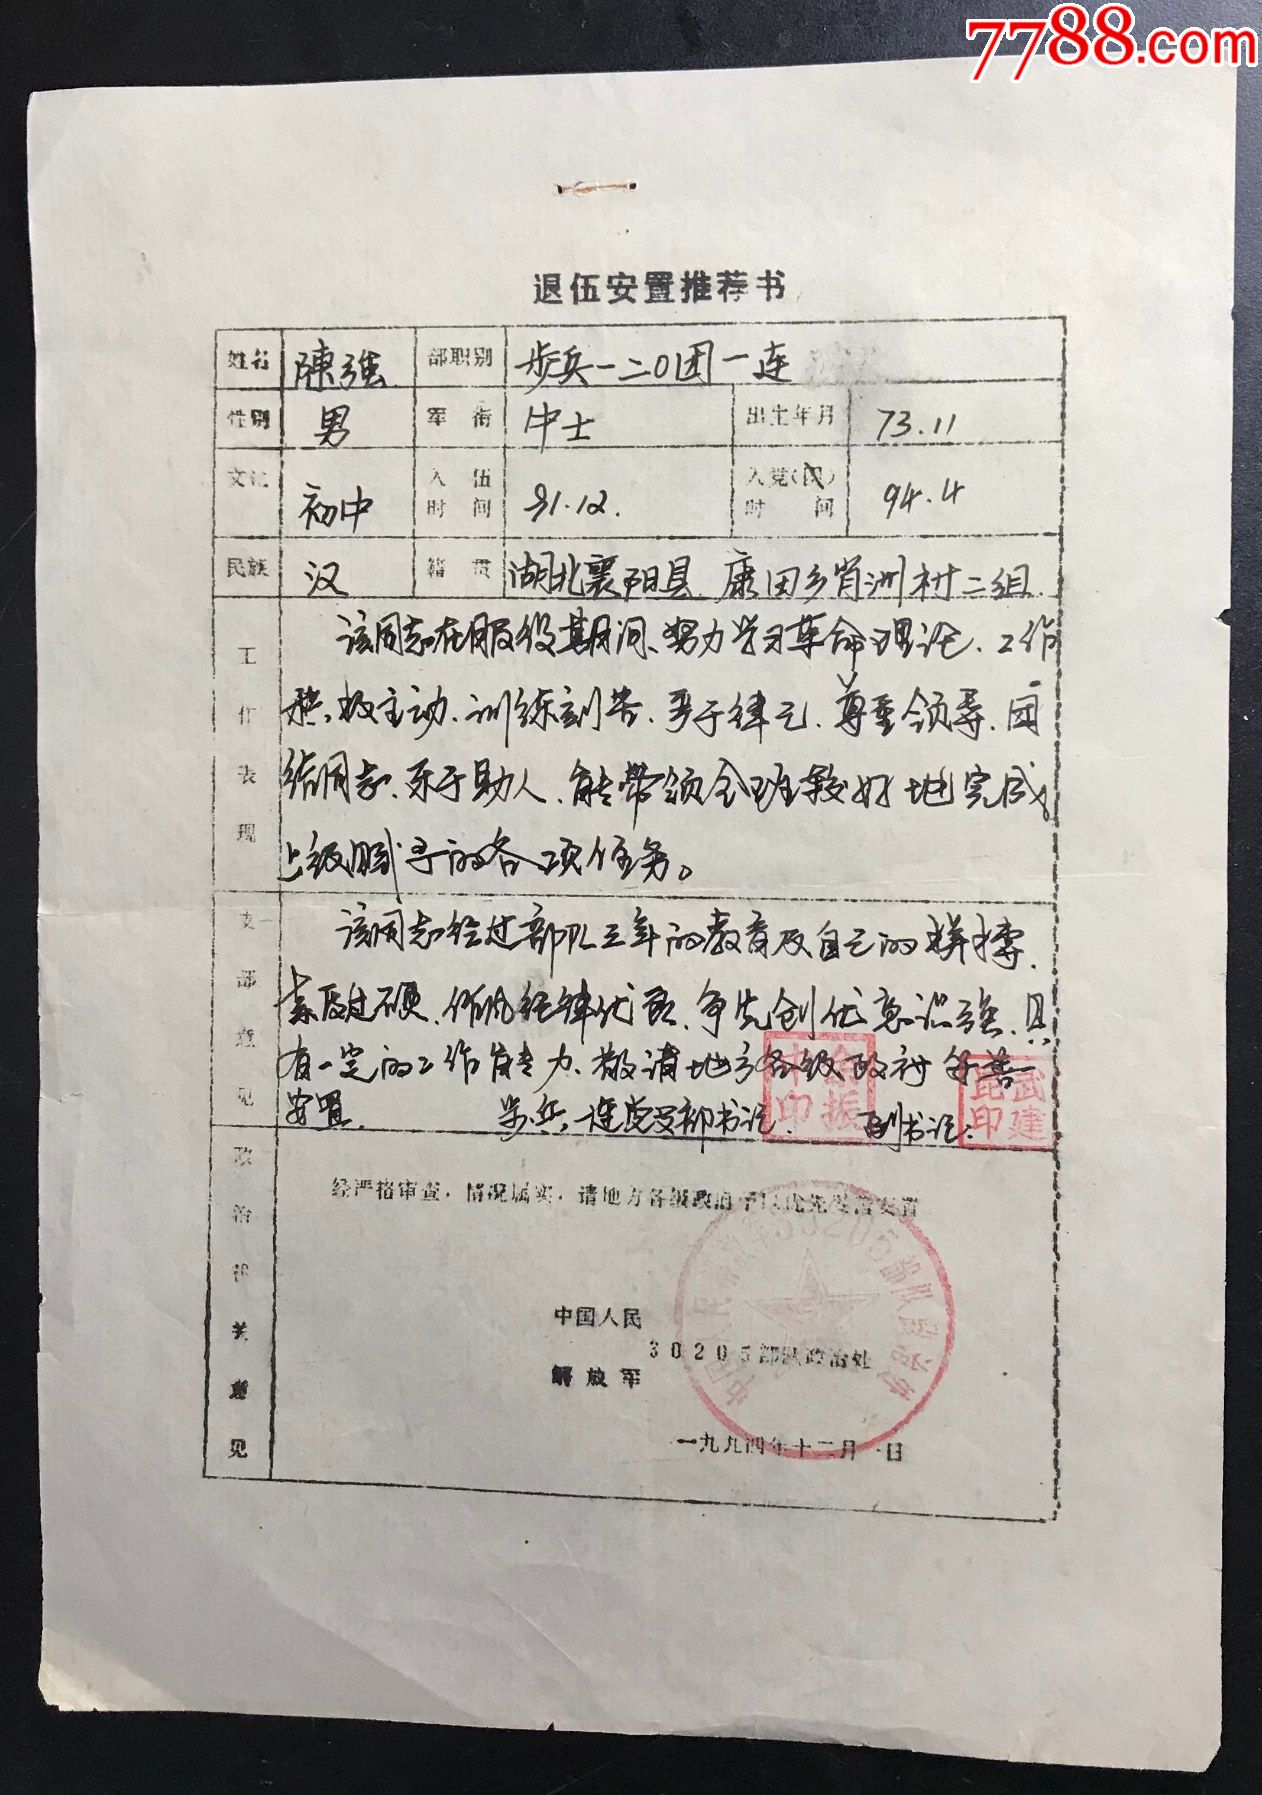 7788.com
退伍安置推荐书
姓名 陳强 部职别 步兵一二0团一连
性别 男 军衔 中士 出生年月 73.11
文化 初中 入伍时间 91.12. 入党(团)时间 94.4
民族 汉 籍贯 湖北襄阳县 康田乡肖洲村二组
工作表现
该同志在服役期间、努力学习革命理论、工作
积极主动、训练刻苦、严于律己、尊重领导、团
结同志、乐于助人、能带领全班较好地完成
上级赋予的各项任务。
支部意见
该同志经过部队三年的教育及自己的拼搏、
素质过硬、作风纪律优良、争先创优意识强、具
有一定的工作能力、敬请地方各级政府妥善
安置 步兵一连党支部书记: 副书记:
余振中印
武建昆印
政治机关意见
经严格审查，情况属实，请地方各级政府予以优先妥善安置
中国人民解放军 30205部队政治处
中国人民解放军30205部队政治处
一九九四年十二月一日